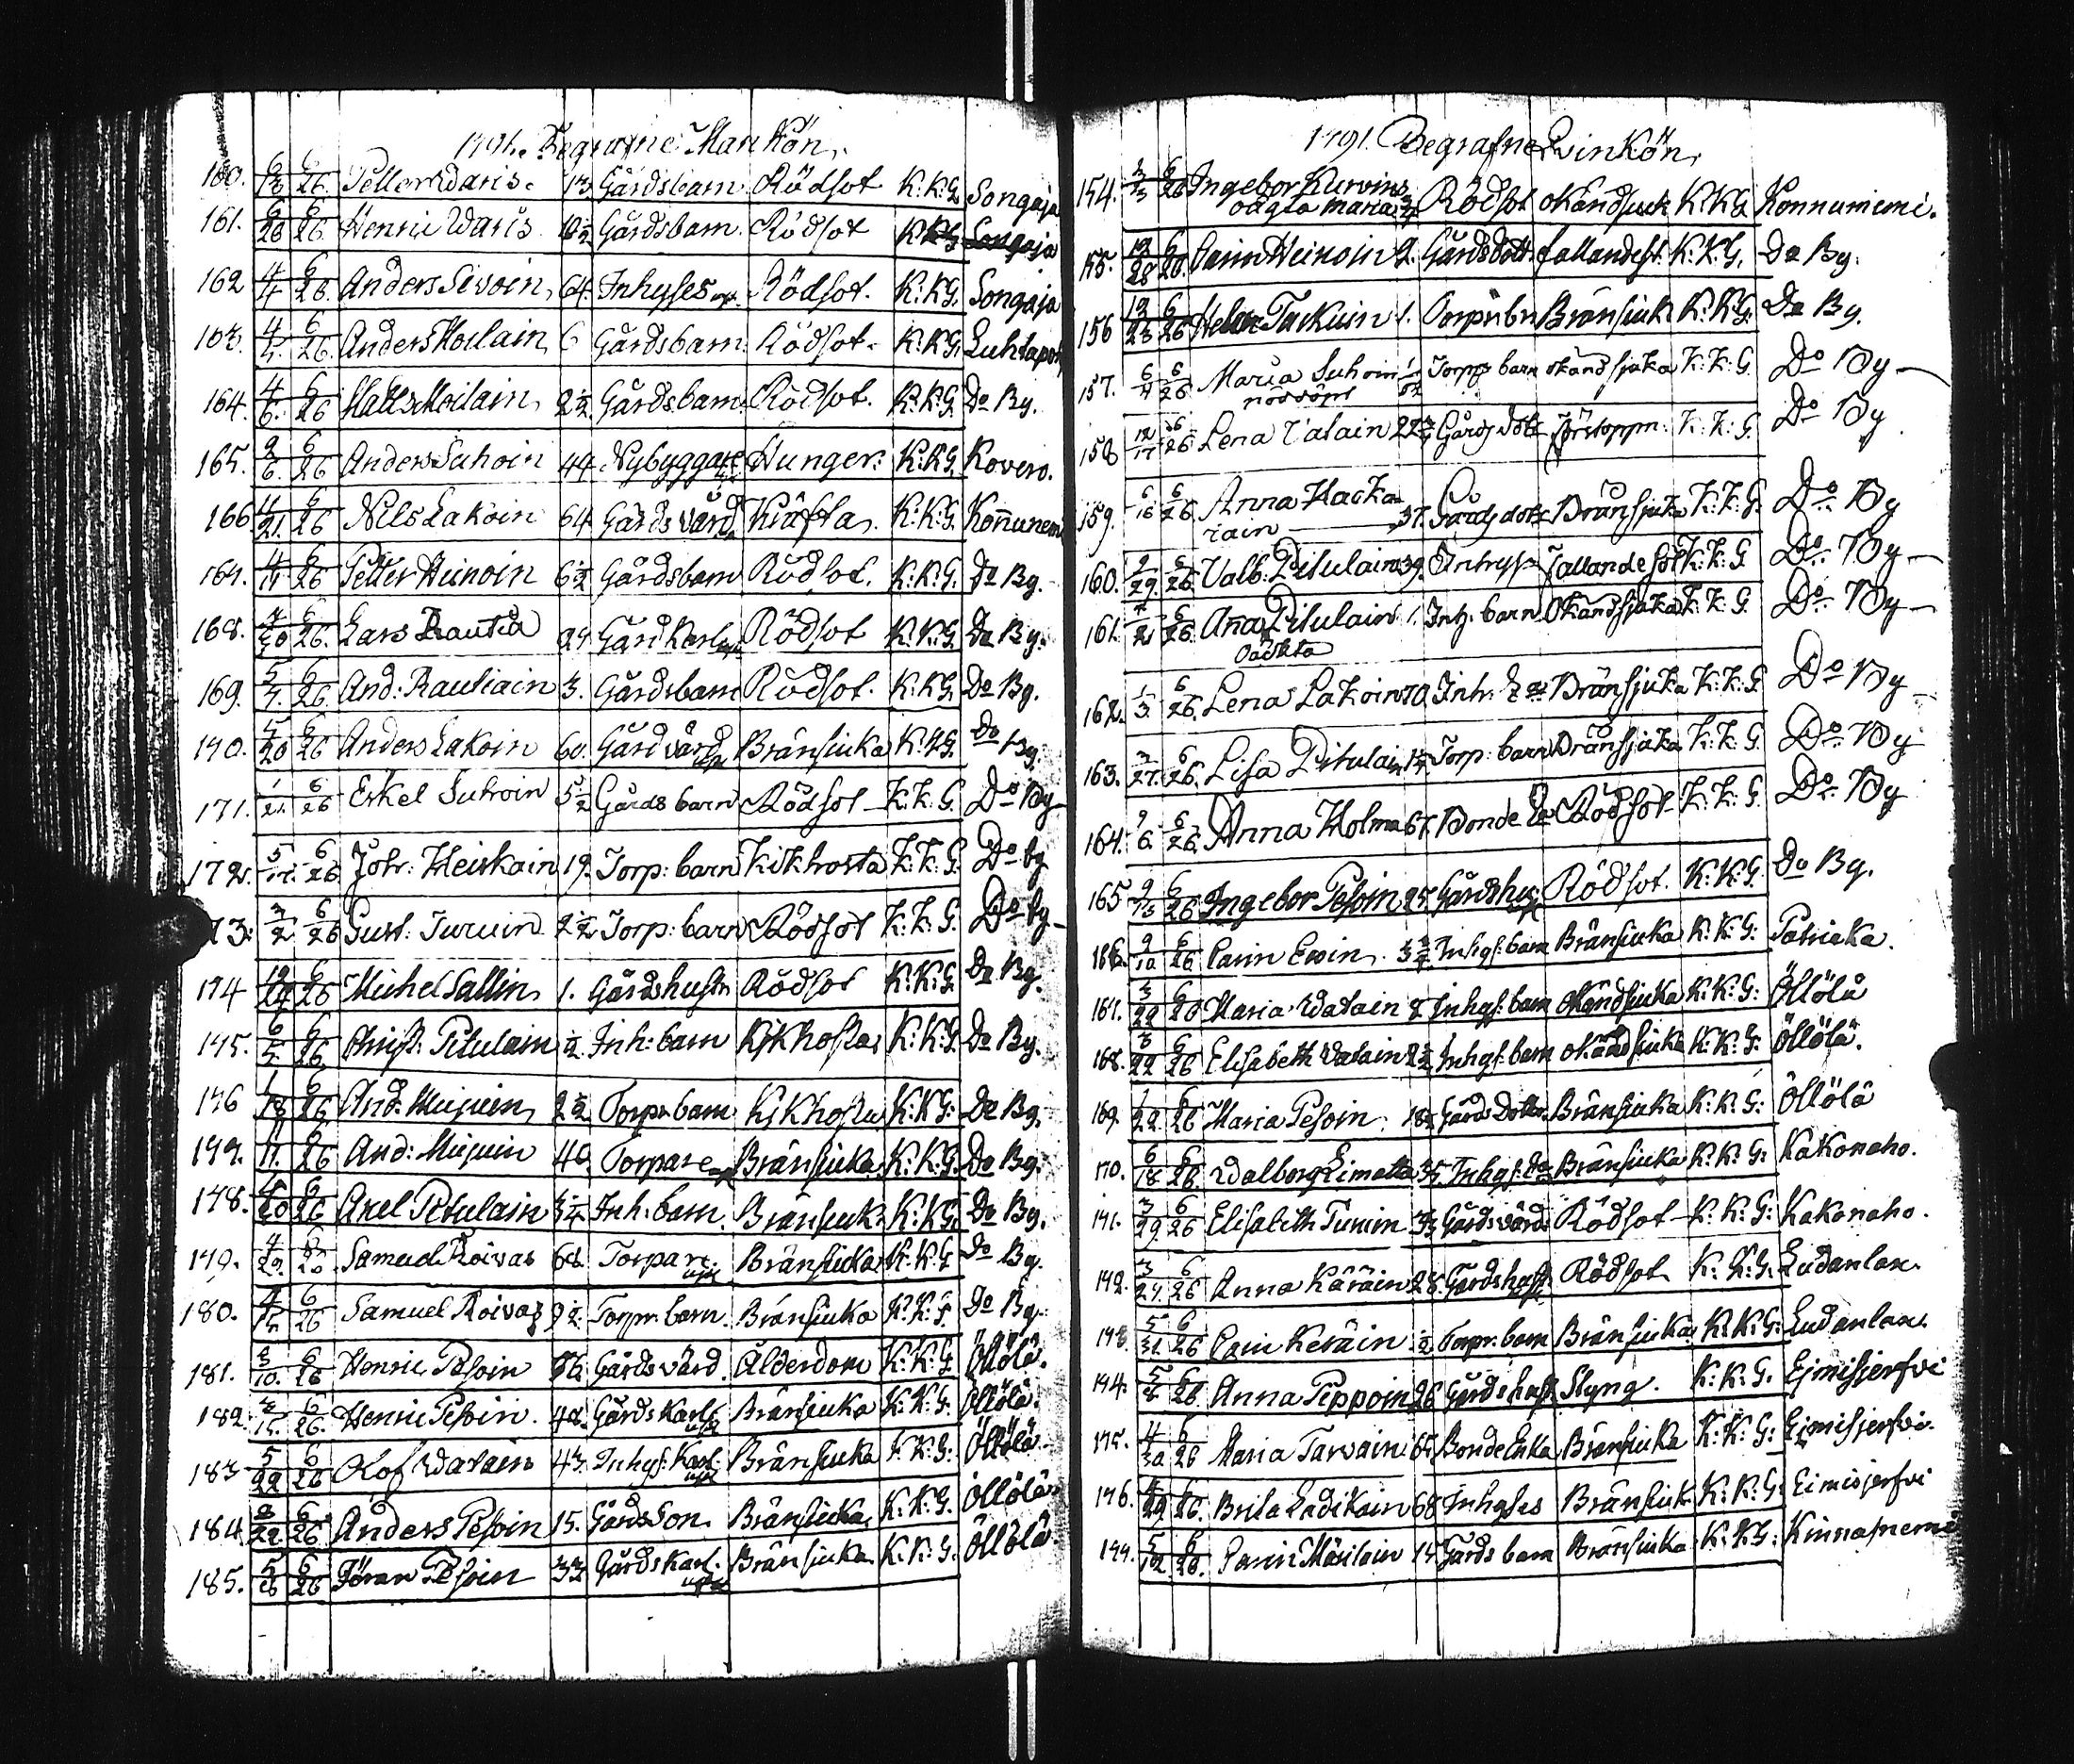 1791. Begrafne Mankön.
160. 6/13 6/26. Petter Waris. 13. Gårdsbarn. Rödsot K:K:G. Songaja
161. 6/26 6/26. Henric Waris 10½ Gårdsbarn. Rödsot K:K:G. Songaja
162 4/4 6/26. Anders Sivoin, 64. Inhyses Rödsot. K:K:G. Songaja
163. 4/4. 6/26. Anders Moilain, 6 Gårdsbarn. Rödsot. K:K:G. Luhtapoh
164. 4/6. 6/26 Matts Moilain, 2½ Gårdsbarn. Rödsot. K:K:G. Do By.
165. 2/6. 6/26 Anders Suhoin 44. Nybyggare Hunger: K:K:G. Kovero.
166 11/21. 6/26 Nils Lakoin 64 Gårds värd Kräfta, K:K:G. Koñunem
167. 4/11 6/26 Petter Heinoin 6½ Gårdsbarn Rödsot. K:K:G. Do By.
168. 6/26. Lars Rautia 24 Gård Karl Rödsot K:K:G. Do By.
169. 5/7. 6/26. And: Rautiain 3. Gårdsbarn Rödsot. K:K:G. Do By.
170. 5/20 6/26 Anders Lakoin 60. Gård värd Bränsiuka K:K:G. Do By.
171. 1/21. 6/26 Erkel Suhoin 5½ Gårds barn Rödsot K:K:G. Do By
172. 5/17. 6/26. Joh: Heiskain 19. Torp: barn Kikhosta K:K:G. Do by
173. 3/2 6/26 Gust: Turuin 2½ Torp: barn Rödsot K:K:G. Do by
174 12/29 6/26 Michel Sallin, 1. Gårdshustr Rödsot K:K:G. Do By.
175. 6/5 6/26 Christ: Pitulain ½ Inh: barn Kikhosta K:K:G. Do By.
176 1/18 6/26 And: Mujuin, 2½ Torpr barn Kikhosta K:K:G. Do By.
177. 11. 6/26 And: Mujuin 40. Torpare Bränsiuka K:K:G. Do By.
178. 6/26 Axel Pitulain 3¼ Inh: barn. Bränsiuk: K:K:G. Do By.
179. 4/29. 6/26. Samuel Roivas 68. Torpare Bränsiuka K:K:G Do By.
180. 4/15 6/26 Samuel Roivas 9½. Torpr. barn. Bränsiuka K:K:G. Do By.
181. 3/10. 6/26 Henric Pesoin 76. Gårds värd. Ålderdom K:K:G. Öllölä.
182. 4/15. 6/26. Henric Pesoin. 42. Gårds Karl Bränsiuka K:K:G. Öllölä.
183 5/22 6/26 Olof Watain 43. Inhys: Karl. Bränsiuka K:K:G. Öllölä
184 3/22. 6/26. Anders Pesoin 15. Gårds Son. Bränsiuka, K:K:G. Öllölä.
185. 5/16 6/26 Jöran Pesoin 33 Gårds Karl. Bränsiuka. K:K:G. Öllölä.
1791. Begrafne Qvinkön,
154. 3/13 6/26 Ingebor Kurvins
oägta Maria ¾ Rödsot okändsiuk K:K:G. Konnuniemi.
155. 12/28 6/26. Carin Heinoin 2. Gårds Dott. fallandesj. K:K:G. Do By.
156 12/23 6/26 Helena Taskuin 1. Torpr. bn Bränsiuk K:K:G. Do By.
157. 6/4 6/26. Maria Suhoin 1/52 Torp barn okänd sjuka K:K:G. Do By
nödöpt
158 12/17 6/26 Lena Valain 22¾ Gårds dott: Förstoppn: K:K:G. Do By
159. 6/16 6/26. Anna Hacka
rain 37. Gårds dott: Bränsjuka K:K:G. Do By
160. 2/29. 6/26. Valb: Pitulain 39. Inhys: Fallandesot K:K:G Do By
161. 4/21 6/26. Ana Pitulain 1. Inh. barn Okändsjuka K:K:G. Do By
oäckta
162. 1/3. 6/26. Lena Lakoin 70. Inh: Bränsjuka K:K:G. Do By
163. 3/27. 6/26. Lisa Pitulain Torp: barn Bränsjuka K:K:G. Do By
164. 9/6. 6/26. Anna Holma 67. Bonde Rödsot K:K:G. Do By
165 9/13 6/26 Ingebor Pesoin 25 Gårdshus Rödsot. K:K:G. Do By.
166. 9/10 6/26 Carin Ewin. Inhys: barn Bränsiuka K:K:G: Patrieka.
167. 3/22 6/26 Maria Watain 8 Inhys: barn okändsiuka K:K:G: Öllölä
168. 3/22 6/26 Elisabeth Watain 2½ Inhys: barn okändsiuka K:K:G: Öllölä.
169. 1/22 6/26 Maria Pesoin, 18½ Gårds Dotter Bränsiuka K:K:G: Öllölä
170. 6/18 6/26. Walborg Eimatta 35. Inhys: Do Bränsiuka K:K:G: Kakonaho.
171. 3/29 6/26 Elisabeth Tunin 73 Gårds värds Rödsot K:K:G: Kakonaho.
172. 3/27. 6/26 Anna Käräin 28. Gårdshust: Rödsot K:K:G: Ludanlax.
173 5/31. 6/26 Carin Keräin ½ Torpr. barn Bränsiuka K:K:G: Ludanlax.
174. 5/8 6/26 Anna Peppoin 26 Gårds hust Styng. K:K:G. Ejmisjerfvi
175. 4/30 6/26 Maria Tarvain 65 Bonde Enka Bränsiuka K:K:G: Ejmisjerfvi.
176. 4/29 6/26. Brita Ladikain 68 Inhyses Bränsiuk K:K:G: Eimisjerfvi
177. 5/12 6/26. Carin Mäsilain 15 Gårds barn Bränsiuka K:K:G: Kinnasnemi